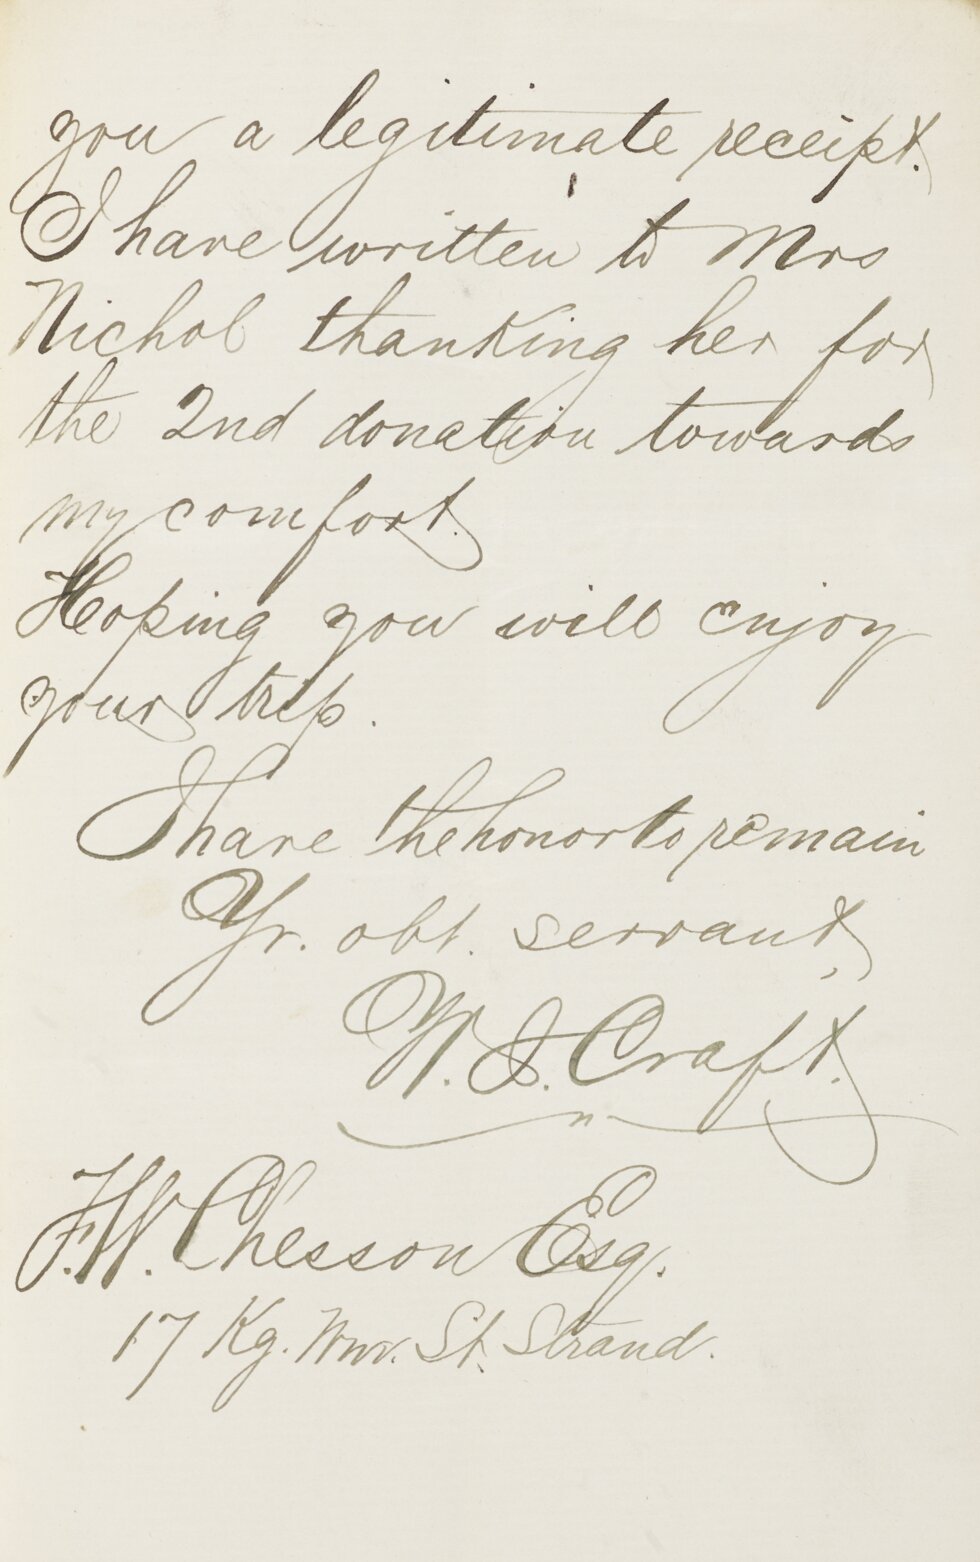 you a legitimate receipt.
I have written to Mrs
Nichol thanking her for
the 2nd donation towards
my comfort.
Hoping you will enjoy
your trip.
I have the honor to remain
Yr. obt. servant,
W. J. Craft.
F. W. Chesson Esq.
17 Kg. Wm. St. Strand.